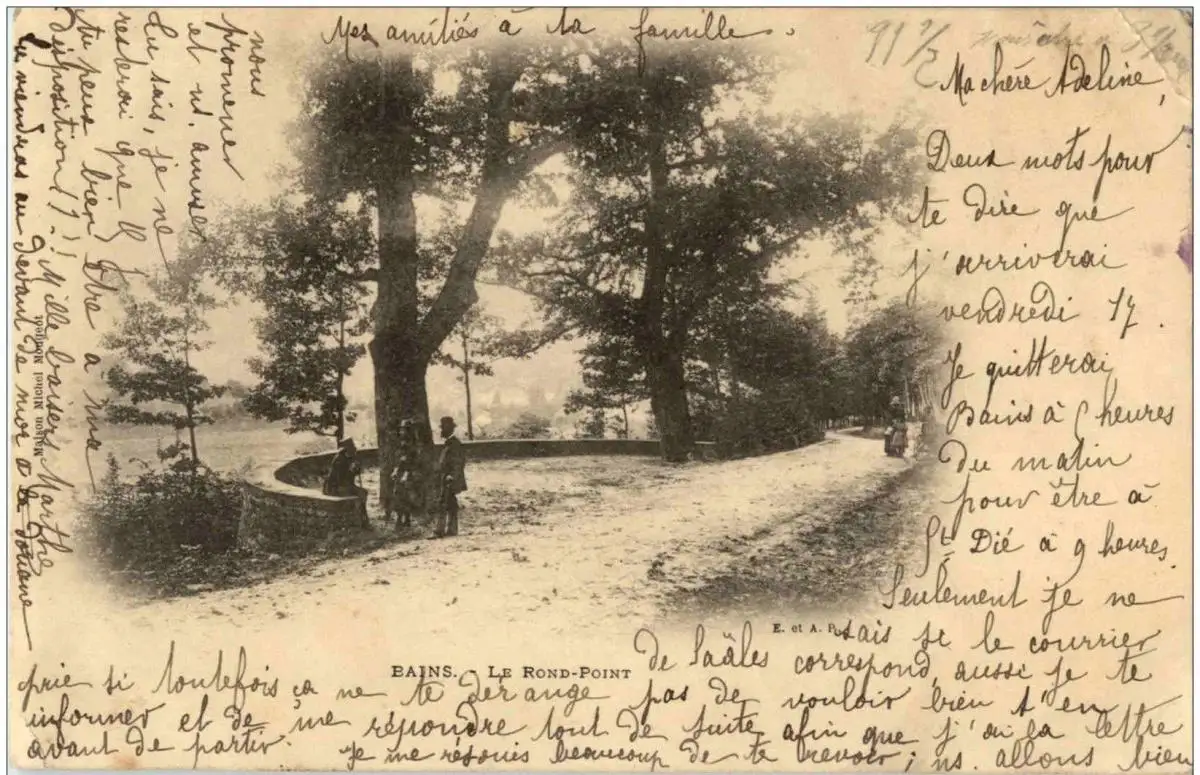 Mes amitiés à ta famille.
Ma chère Adeline,
Deux mots pour
te dire que
j'arriverai
vendredi 17.
Je quitterai
Bains à 6 heures
du matin
pour être à
St Dié à 9 heures.
Seulement je ne
sais si le courrier
de Saâles correspond, aussi je te
prie si toutefois ça ne te dérange pas de vouloir bien t'en
informer et de me répondre tout de suite afin que j'ai la lettre
avant de partir.
Je me réjouis beaucoup de te revoir ; ns. allons bien
nous
promener
et ns. amuser
Tu sais, je ne
resterai que 8 j.
tu peux bien être à ma
disposition !?.! Mille baisers Marthe
Tu viendras au devant de moi à la douane
BAINS. - LE ROND-POINT
E. et A. P.
Maison Michel